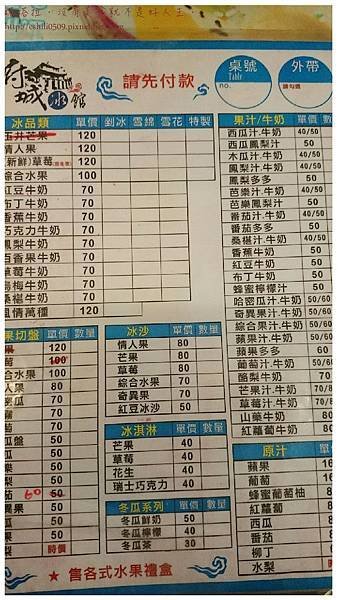 http://eshili0509.pixnet.net/blog
府城冰館
請先付款
桌號 Table no.
外帶 請勾選
冰品類 單價 剉冰 雪綿 雪花 特製
玉井芒果 120
情人果 120
(新鮮)草莓 120
綜合水果 100
紅豆牛奶 70
布丁牛奶 70
香蕉牛奶 70
巧克力牛奶 70
鳳梨牛奶 70
百香果牛奶 70
草莓牛奶 70
烏梅牛奶 70
桑椹牛奶 70
風情萬種 120
果切盤 單價 數量
果 120
莓 100
合水果 100
人果 80
密瓜 70
茄 70
瓜盤 50
瓜 50
樂 50
梨 50
茄 60 50
異果 50
果 50
梨 時價
冰沙 單價 數量
情人果 80
芒果 80
草莓 80
綜合水果 70
奇異果 70
紅豆冰沙 50
冰淇淋 單價 數量
芒果 40
草莓 40
花生 40
瑞士巧克力 40
冬瓜系列 單價 數量
冬瓜鮮奶 50
冬瓜檸檬 40
冬瓜茶 30
★ 售各式水果禮盒
果汁/牛奶 單價 數
西瓜汁.牛奶 40/50
西瓜鳳梨汁 50
木瓜汁.牛奶 40/50
鳳梨汁.牛奶 40/50
鳳梨多多 50
芭樂汁.牛奶 40/50
芭樂鳳梨汁 50
番茄汁.牛奶 40/50
桑椹汁.牛奶 40/50
香蕉牛奶 50
紅豆牛奶 50
布丁牛奶 50
蜂蜜檸檬汁 50
哈密瓜汁.牛奶 50/60
奇異果汁.牛奶 50/60
綜合果汁.牛奶 50/60
蘋果汁.牛奶 50/6
蘋果多多 60
葡萄汁.牛奶 50/60
酪梨牛奶 70
芒果汁.牛奶 70/8
草莓汁.牛奶 70/8
山藥牛奶 80
紅蘿蔔牛奶 80
原汁 單
蘋果 16
葡萄 16
蜂蜜葡萄柚 8
紅蘿蔔 8
西瓜 8
番茄 8
柳丁 8
水梨 時